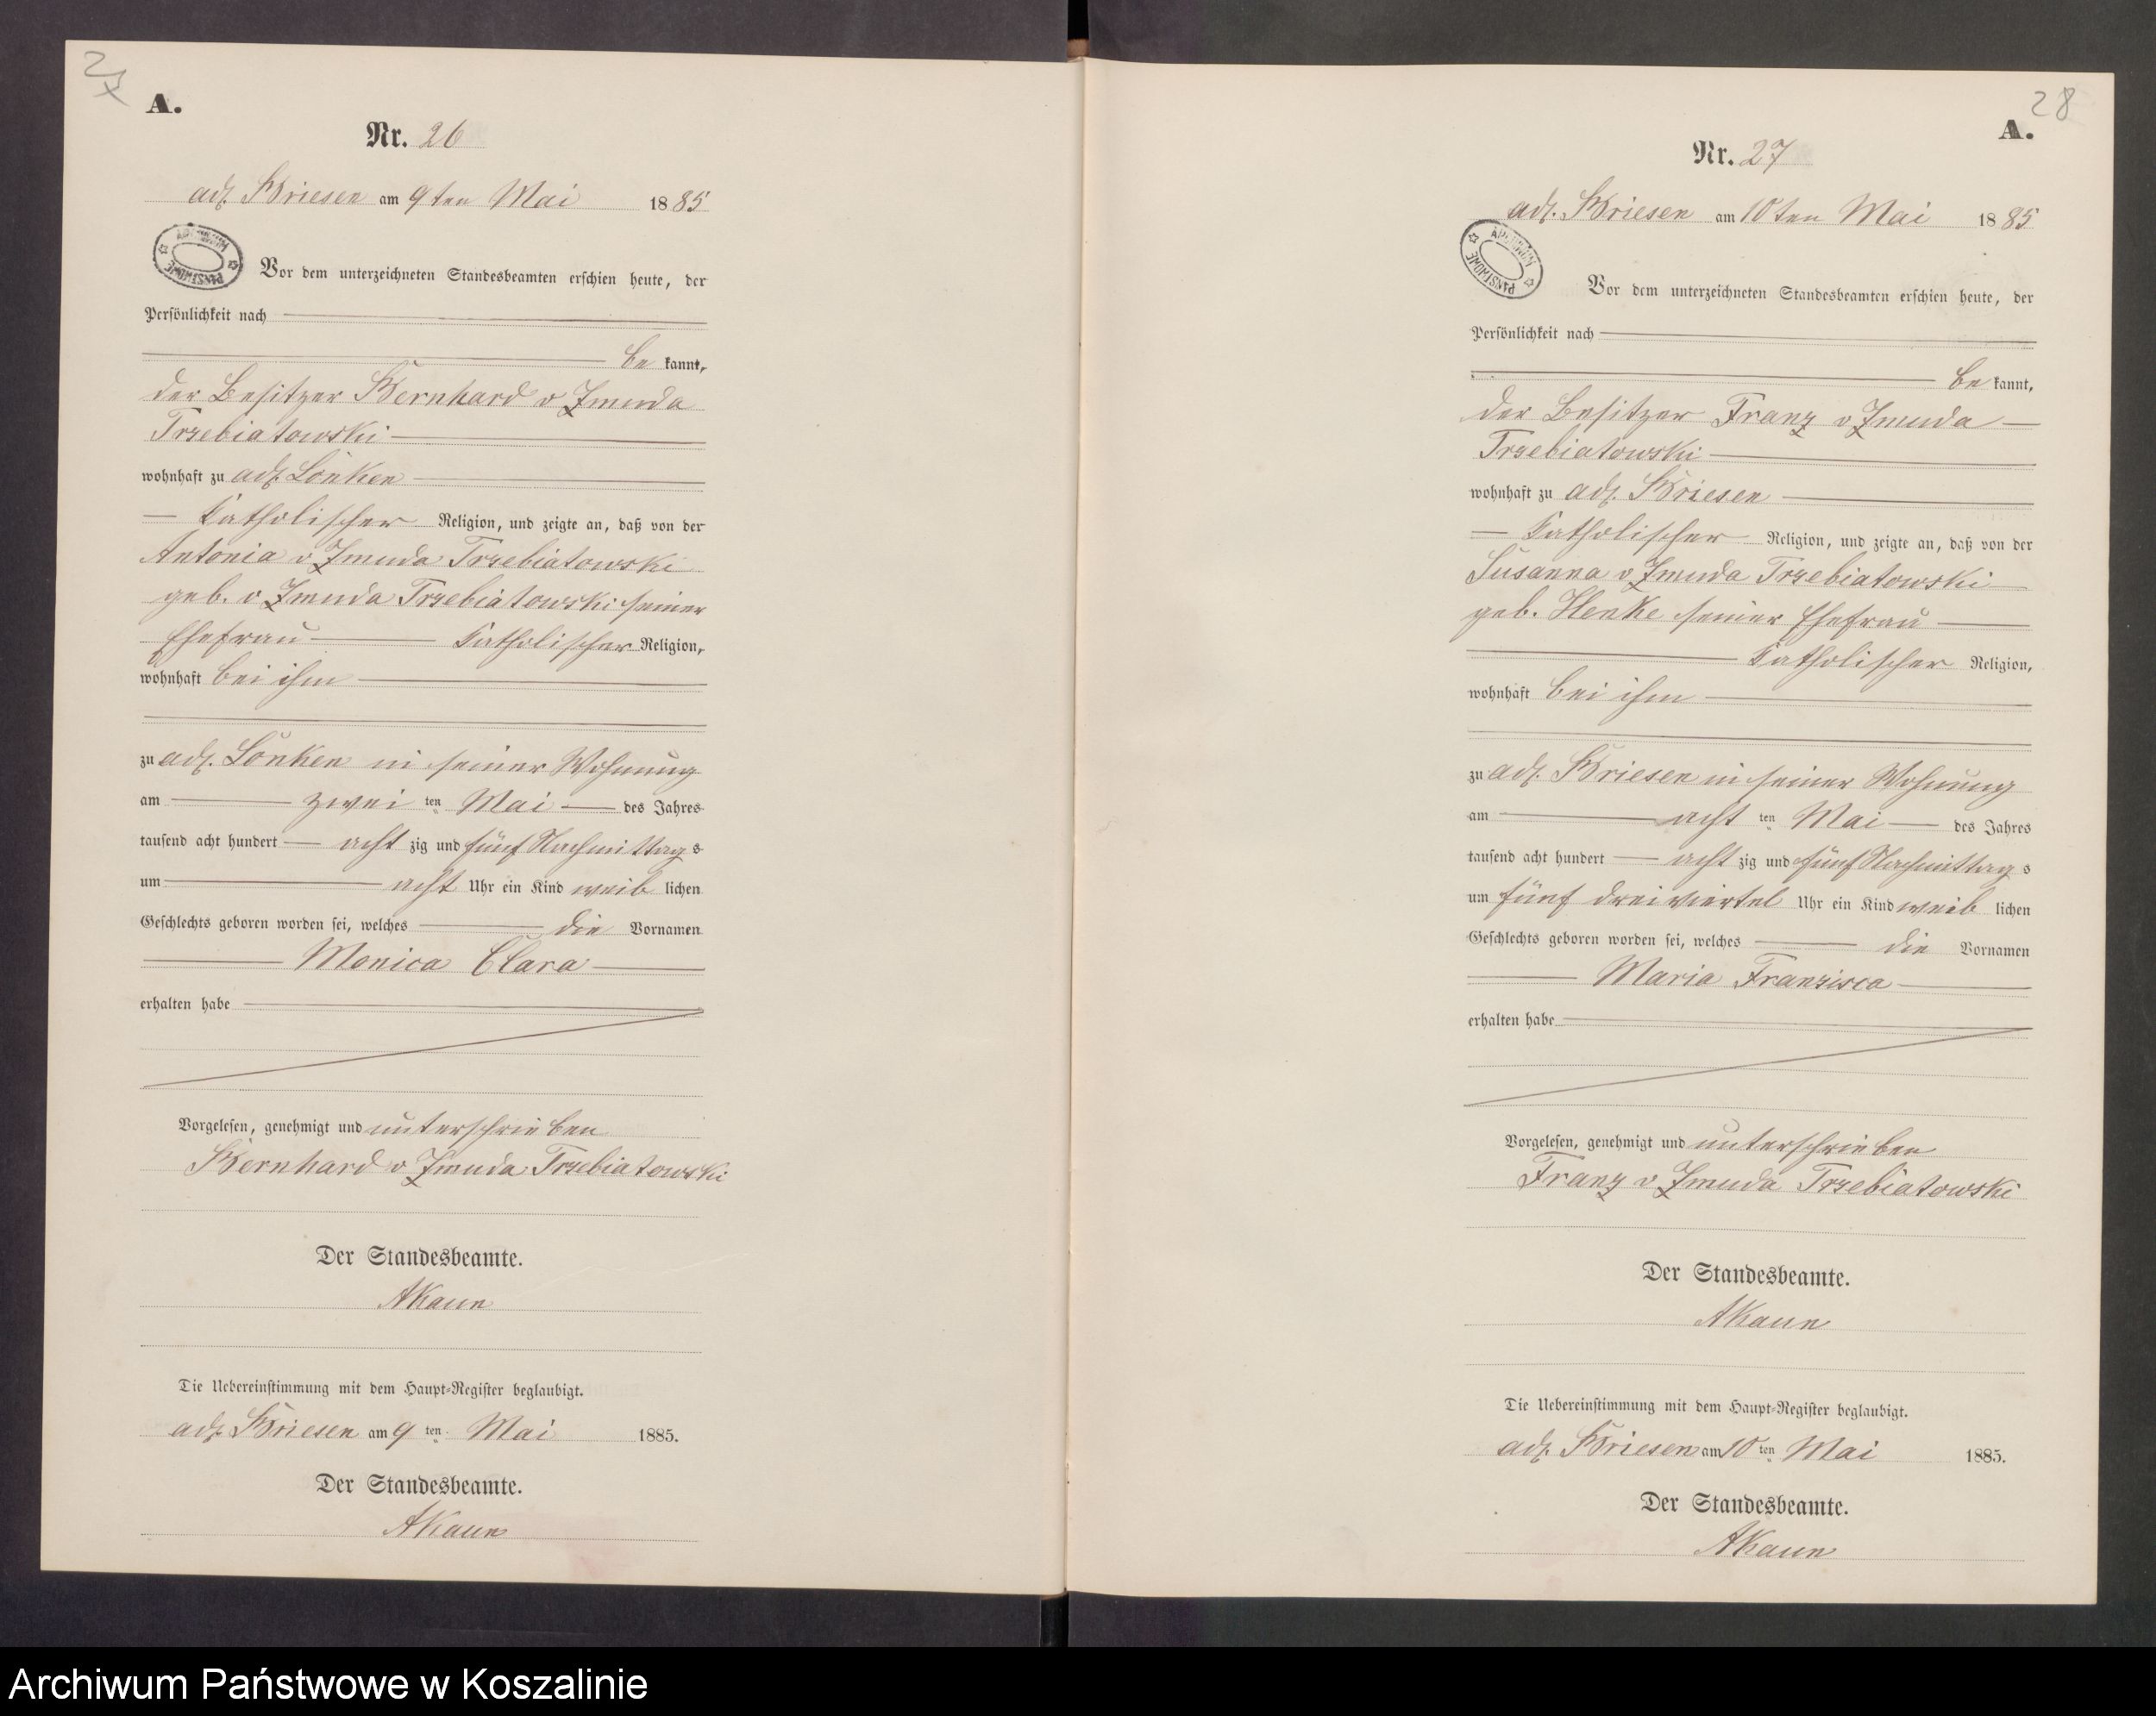 27
A.
Nr. 26
adl. Briesen am 9ten Mai 1885
ARCHIWUM PAŃSTWOWE
Vor dem unterzeichneten Standesbeamten erschien heute, der
Persönlichkeit nach
be kannt,
der Besitzer Bernhard v Zmuda
Trzebiatowski
wohnhaft zu adl. Lönken
katholischer Religion, und zeigte an, daß von der
Antonia v Zmuda Trzebiatowski
geb. v Zmuda Trzebiatowski seiner
Ehefrau katholischer Religion,
wohnhaft bei ihm
zu adl. Lönken in seiner Wohnung
am zwei ten Mai des Jahres
tausend acht hundert acht zig und fünf Nachmittag s
um acht Uhr ein Kind weib lichen
Geschlechts geboren worden sei, welches die Vornamen
Monica Clara
erhalten habe
Vorgelesen, genehmigt und unterschrieben
Bernhard v Zmuda Trzebiatowski
Der Standesbeamte.
AKaun
Die Uebereinstimmung mit dem Haupt-Register beglaubigt.
adl. Briesen am 9 ten Mai 1885.
Der Standesbeamte.
AKaun
28
A.
Nr. 27
adl. Briesen am 10ten Mai 1885
ARCHIWUM PAŃSTWOWE
Vor dem unterzeichneten Standesbeamten erschien heute, der
Persönlichkeit nach
be kannt,
der Besitzer Franz v Zmuda
Trzebiatowski
wohnhaft zu adl. Briesen
katholischer Religion, und zeigte an, daß von der
Susanna v Zmuda Trzebiatowski
geb. Henke seiner Ehefrau
katholischer Religion,
wohnhaft bei ihm
zu adl. Briesen in seiner Wohnung
am acht ten Mai des Jahres
tausend acht hundert acht zig und fünf Nachmittag s
um fünf dreiviertel Uhr ein Kind weib lichen
Geschlechts geboren worden sei, welches die Vornamen
Maria Franzisca
erhalten habe
Vorgelesen, genehmigt und unterschrieben
Franz v Zmuda Trzebiatowski
Der Standesbeamte.
AKaun
Die Uebereinstimmung mit dem Haupt-Register beglaubigt.
adl. Briesen am 10 ten Mai 1885.
Der Standesbeamte.
AKaun
Archiwum Państwowe w Koszalinie